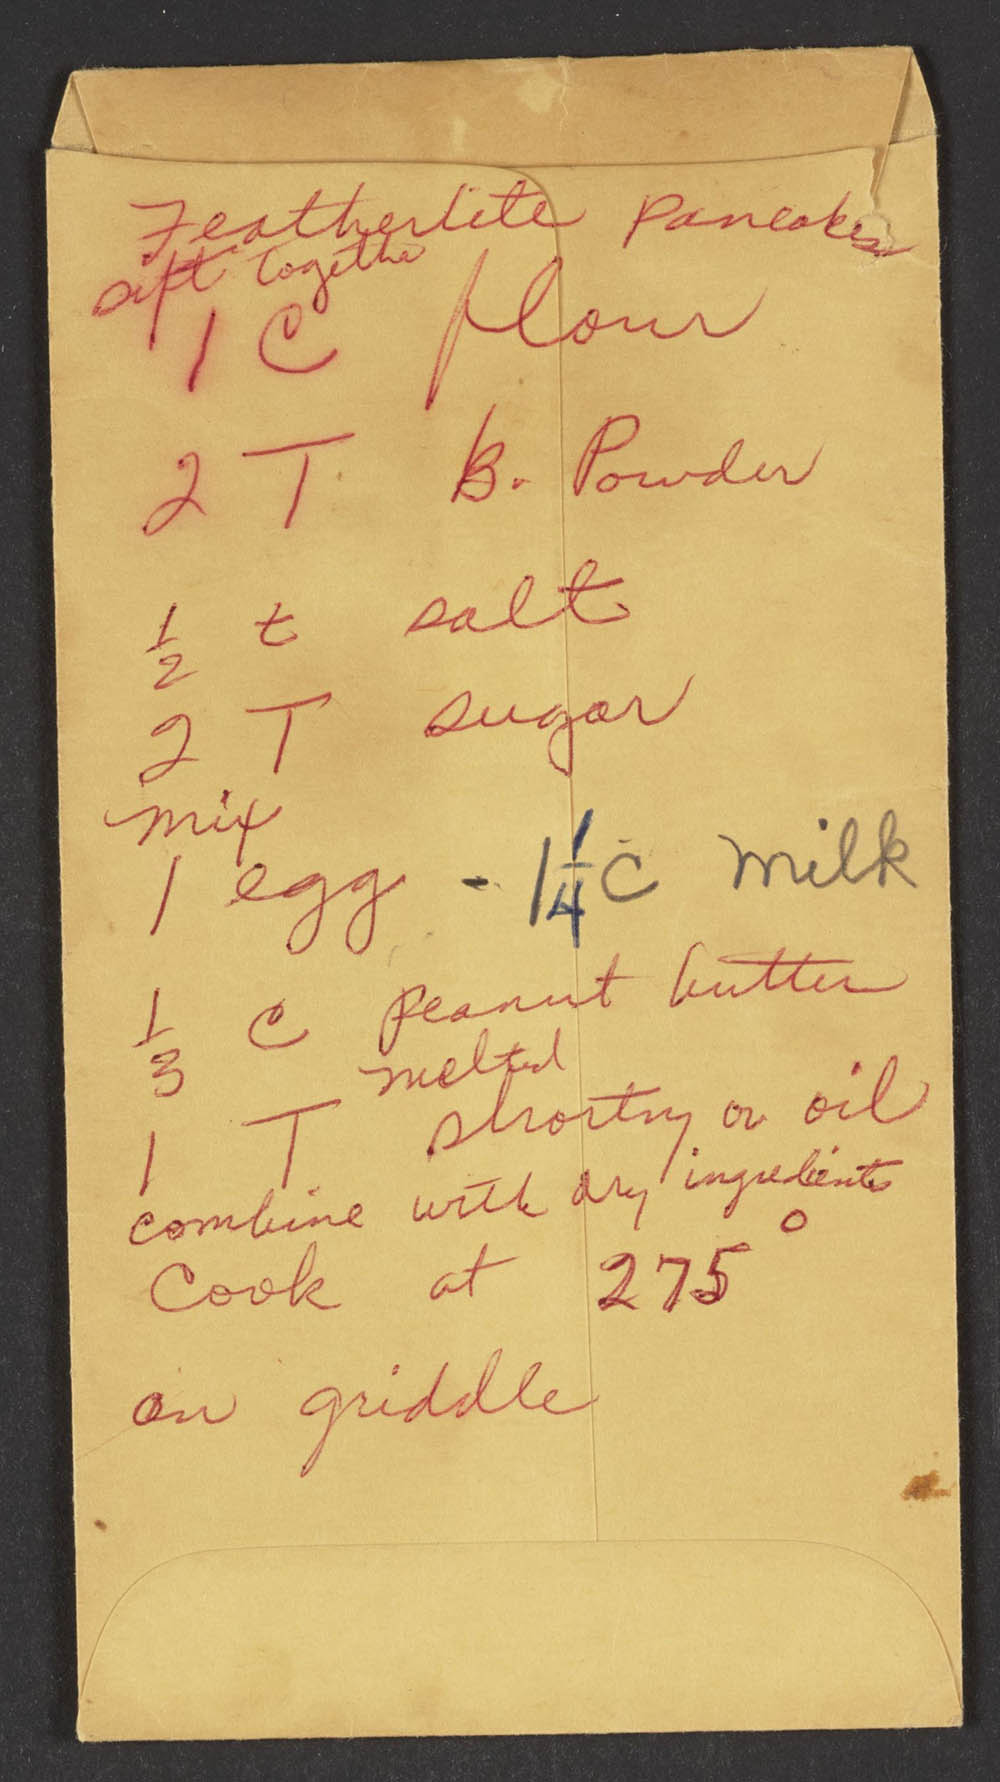 Featherlite Pancakes
sift together
1 C flour
2 T B. Powder
1/2 t salt
2 T sugar
mix
1 egg - 1 1/4 C milk
1/3 C peanut butter
melted
1 T shortng or oil
combine with dry ingredients
Cook at 275°
on griddle